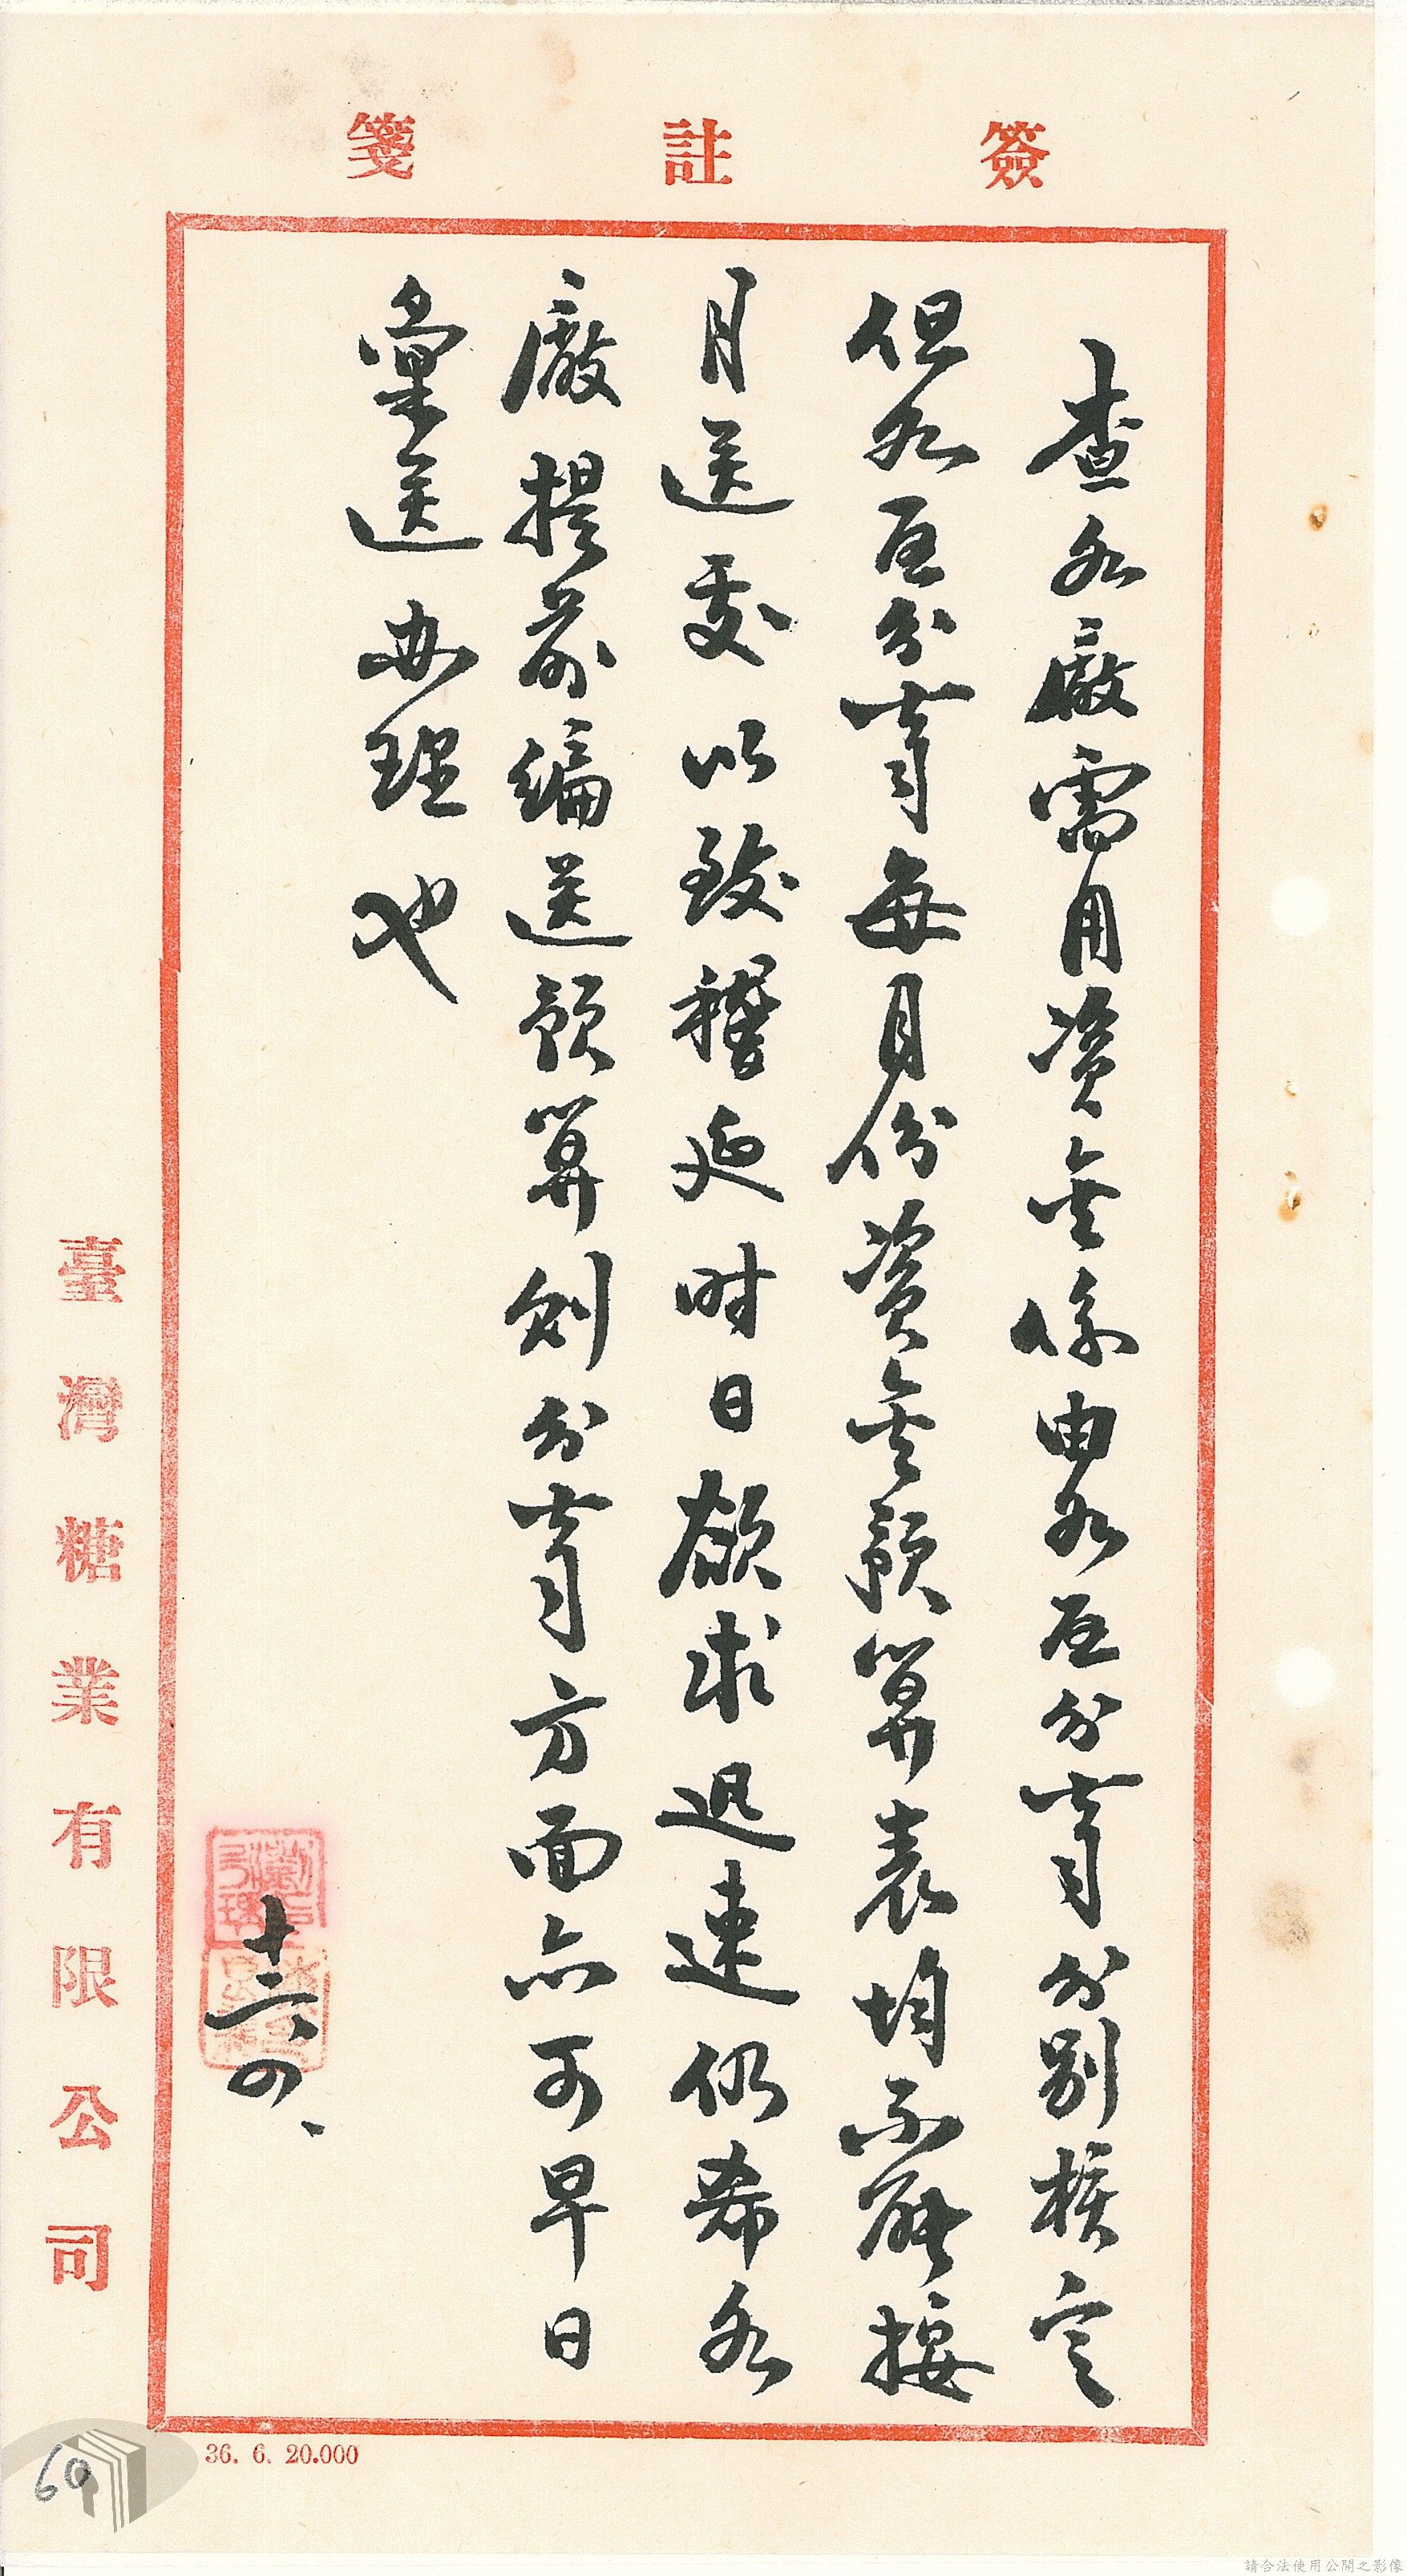 簽註箋
查各廠需用資金係由各區分公司分別核定
但各區分公司每月份資金預算表均不能按
月送處以致稽延时日欲求迅速仍希各
廠提前編送預算則分公司方面亦可早日
彙送办理也
十二六
臺灣糖業有限公司
36. 6. 20.000
60
請合法使用公開之影像